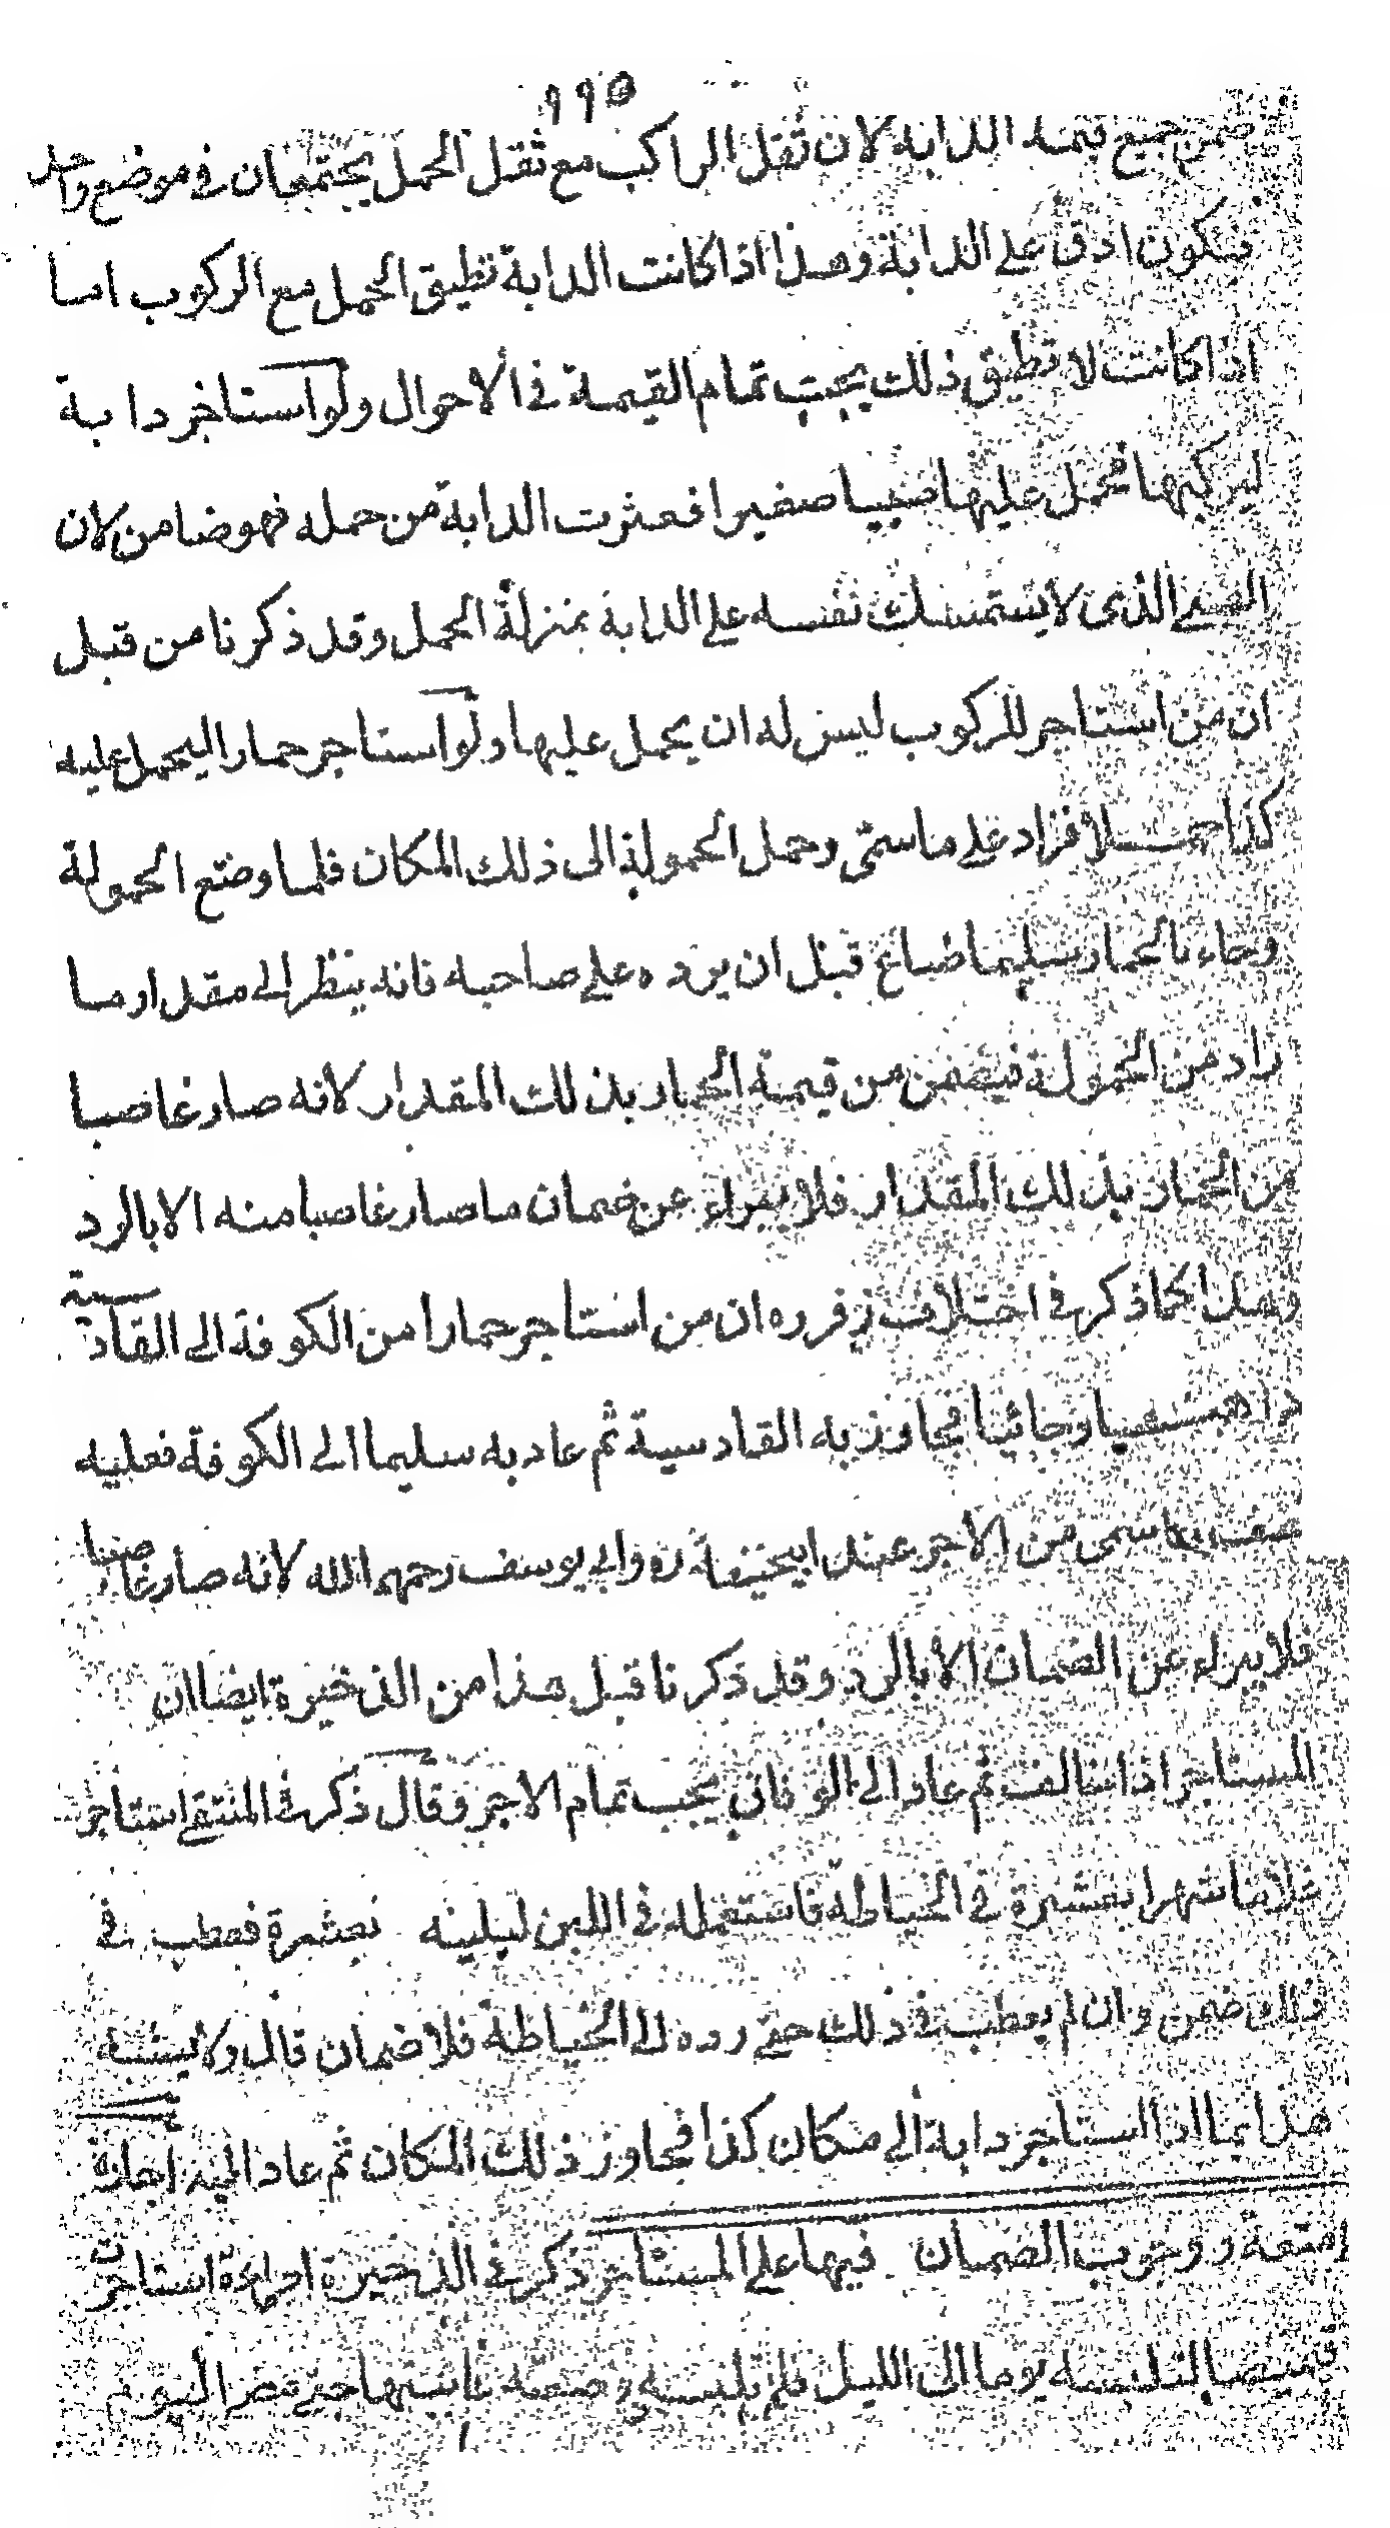 ١٩٥
ضمن جميع قيمة الدابة لان ثقل الراكب مع ثقل الحمل يجتمعان في موضع واحد
فيكون ادق على الدابة وهذا اذا كانت الدابة تطيق الحمل مع الركوب اما
اذا كانت لا تطيق ذلك يجب تمام القيمة في الاحوال ولو استاجر دابة
ليركبها فحمل عليها صبيا صغيرا فعثرت الدابة من حمله فهو ضامن لان
الصبي الذي لا يستمسك نفسه على الدابة بمنزلة الحمل وقد ذكرنا من قبل
ان من استاجر للركوب ليس له ان يحمل عليها ولو استاجر حمارا ليحمل عليه
كذا حملا فزاد على ما سمى وحمل الحمولة الى ذلك المكان فلما وضع الحمولة
وجاء بالحمار سليما ضاع قبل ان يرده على صاحبه فانه ينظر الى مقدار ما
زاد من الحمولة فيضمن من قيمة الحمار بذلك المقدار لانه صار غاصبا
من الحمار بذلك المقدار فلا يبراء عن ضمان ما صار غاصبا منه الا بالرد
وهذا كما ذكر في اختلاف زفر ره ان من استاجر حمارا من الكوفة الى القادسية
ذاهبا وجائيا فجاوز به القادسية ثم عاد به سليما الى الكوفة فعليه
نصف ما سمى من الاجر عند ابيحنيفة ره وابي يوسف رحمهما الله لانه صار غاصبا
فلا يبراء عن الضمان الا بالرد وقد ذكرنا قبل هذا من الذخيرة ايضا ان
المستاجر اذا خالف ثم عاد الى الوفاق يجب تمام الاجر وقال ذكر في المنتقى استاجر
غلاما شهرا بعشرة في الخياطة فاستعمله في اللبن لبلينه بعشرة فعطب في
ذلك ضمن وان لم يعطب في ذلك حتى رده الى الخياطة فلا ضمان قال ولا يشبه
هذا بما اذا استاجر دابة الى مكان كذا فجاوز ذلك المكان ثم عاد اليه اجارة
امتعة ووجوب الضمان فيها على المستاجر ذكر في الذخيرة امراءة استاجرت
قميصا لتلبسه يوما الى الليل فلم تلبسه وضعته في بيتها حتى مضى اليوم